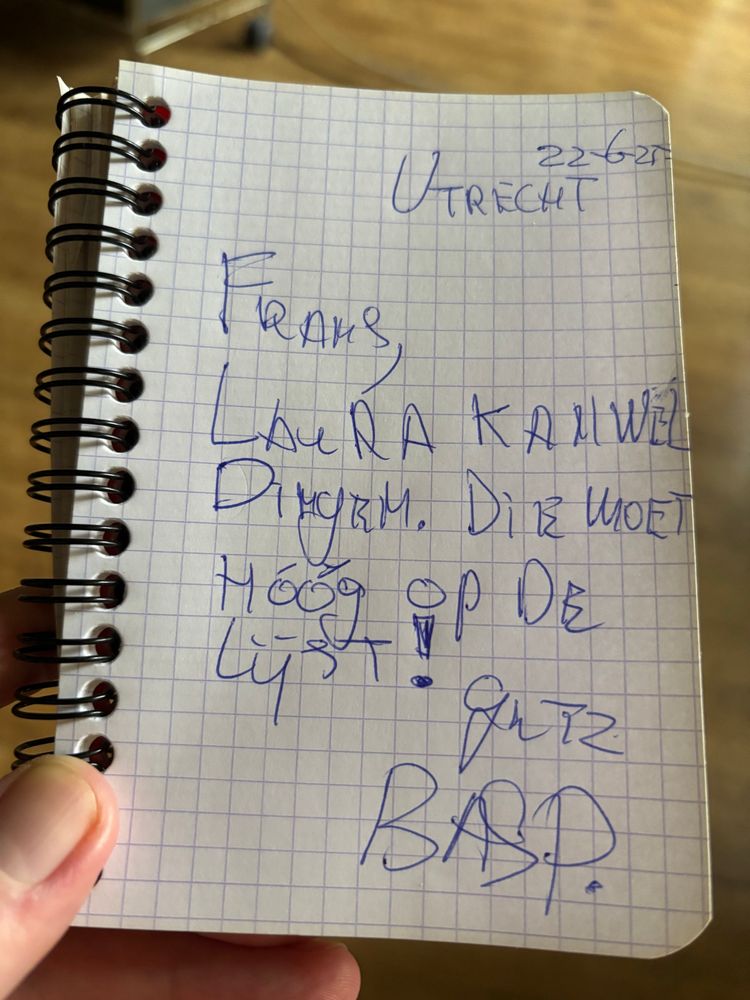 22-6-25
UTRECHT
FRANS,
LAURA KAN WEL
DINGEN. DIE MOET
HÓÓG OP DE
LIJST!
GRTZ
BAS.P.